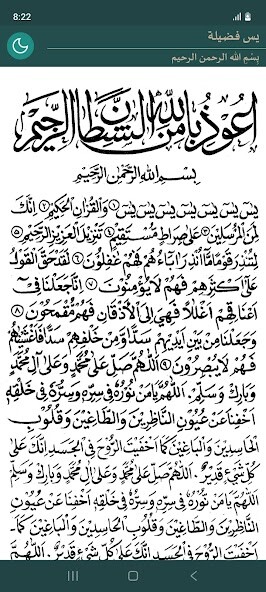 8:22
يس فضيلة
بِسْمِ الله الرحمن الرحيم
اَعُوذُ بِاللّٰهِ مِنَ الشَّيْطَانِ الرَّجِيمِ
بِسْــمِ اللّٰهِ الرَّحْمٰنِ الرَّحِيمِ
يٰسٓ يٰسٓ يٰسٓ يٰسٓ يٰسٓ يٰسٓ يٰسٓ ① وَالْقُرْاٰنِ الْحَكِيمِ ② اِنَّكَ
لَمِنَ الْمُرْسَلِينَ ③ عَلٰى صِرَاطٍ مُسْتَقِيمٍ ④ تَنْزِيلَ الْعَزِيزِ الرَّحِيمِ ⑤
لِتُنْذِرَ قَوْمًا مَٓا اُنْذِرَ اٰبَٓاؤُ۬هُمْ فَهُمْ غَافِلُونَ ⑥ لَقَدْ حَقَّ الْقَوْلُ
عَلٰٓى اَكْثَرِهِمْ فَهُمْ لَا يُؤْمِنُونَ ⑦ اِنَّا جَعَلْنَا فِٓى
اَعْنَاقِهِمْ اَغْلَالًا فَهِىَ اِلَى الْاَذْقَانِ فَهُمْ مُقْمَحُونَ ⑧
وَجَعَلْنَا مِنْ بَيْنِ اَيْدِيهِمْ سَدًّا وَمِنْ خَلْفِهِمْ سَدًّا فَاَغْشَيْنَاهُمْ
فَهُمْ لَا يُبْصِرُونَ ⑨ اَللّٰهُمَّ صَلِّ عَلٰى مُحَمَّدٍ وَعَلٰى اٰلِ مُحَمَّدٍ
وَبَارِكْ وَسَلِّمْ. اَللّٰهُمَّ يَا مَنْ نُورُهُ فِى سِرِّهِ وَسِرُّهُ فِى خَلْقِهِ
اَخْفِنَا عَنْ عُيُونِ النَّاظِرِينَ وَالطَّاغِينَ وَقُلُوبِ
الْحَاسِدِينَ وَالْبَاغِينَ كَمَا اَخْفَيْتَ الرُّوحَ فِى الْجَسَدِ اِنَّكَ عَلٰى
كُلِّ شَىْءٍ قَدِيرٌ. اَللّٰهُمَّ صَلِّ عَلٰى مُحَمَّدٍ وَعَلٰى اٰلِ مُحَمَّدٍ وَبَارِكْ وَسَلِّمْ
اَللّٰهُمَّ يَا مَنْ نُورُهُ فِى سِرِّهِ وَسِرُّهُ فِى خَلْقِهِ اَخْفِنَا عَنْ عُيُونِ
النَّاظِرِينَ وَالطَّاغِينَ وَقُلُوبِ الْحَاسِدِينَ وَالْبَاغِينَ كَمَا
اَخْفَيْتَ الرُّوحَ فِى الْجَسَدِ اِنَّكَ عَلٰى كُلِّ شَىْءٍ قَدِيرٌ. اَللّٰهُمَّ